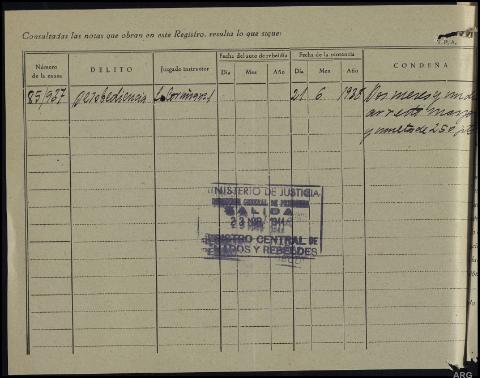 Consultadas las notas que obran en este Registro, resulta lo que sigue:
Número de la causa
DELITO
Juzgado instructor
Fecha del auto de rebeldía
Día Mes Año
Fecha de la sentencia
Día Mes Año
CONDENA
85/937 desobediencia 21 6 1938 Dos meses y un día
arresto mayor
y multa de 250 pts
MINISTERIO DE JUSTICIA
DIRECCION GENERAL DE PRISIONES
SALIDA
REGISTRO CENTRAL DE
PENADOS Y REBELDES
ARG